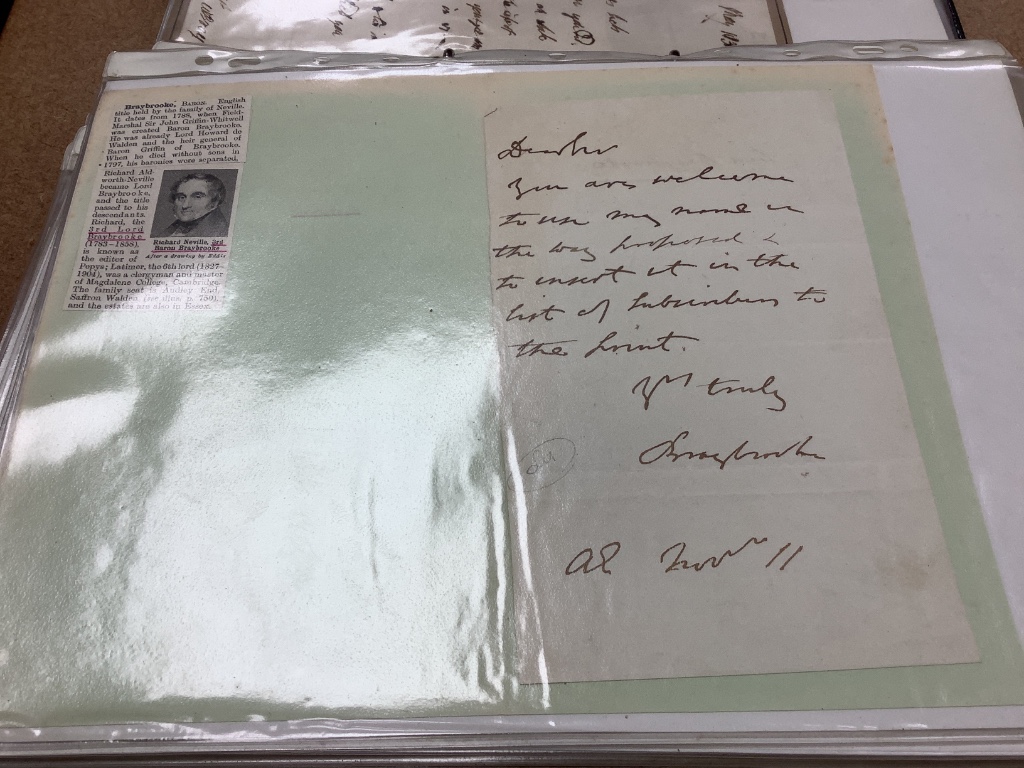 Braybrooke, BARON. English
title held by the family of Neville.
It dates from 1788, when Field-
Marshal Sir John Griffin-Whitwell
was created Baron Braybrooke.
He was already Lord Howard de
Walden and the heir general of
Baron Griffin of Braybrooke.
When he died without sons in
1797, his baronies were separated.
Richard Ald-
worth-Neville
became Lord
Braybrooke,
and the title
passed to his
descendants.
Richard, the
3rd Lord
Braybrooke
(1783-1858),
is known as
the editor of
Pepys; Latimer, the 6th lord (1827-
1904), was a clergyman and master
of Magdalene College, Cambridge.
The family seat is Audley End,
Saffron Walden (see illus. p. 750),
and the estates are also in Essex.
Richard Neville, 3rd
Baron Braybrooke
After a drawing by Eddis
Dear Sir
You are welcome
to use my name in
the way proposed &
to insert it in the
list of Subscribers to
the print.
Yrs truly
Braybrooke
AE Novr 11